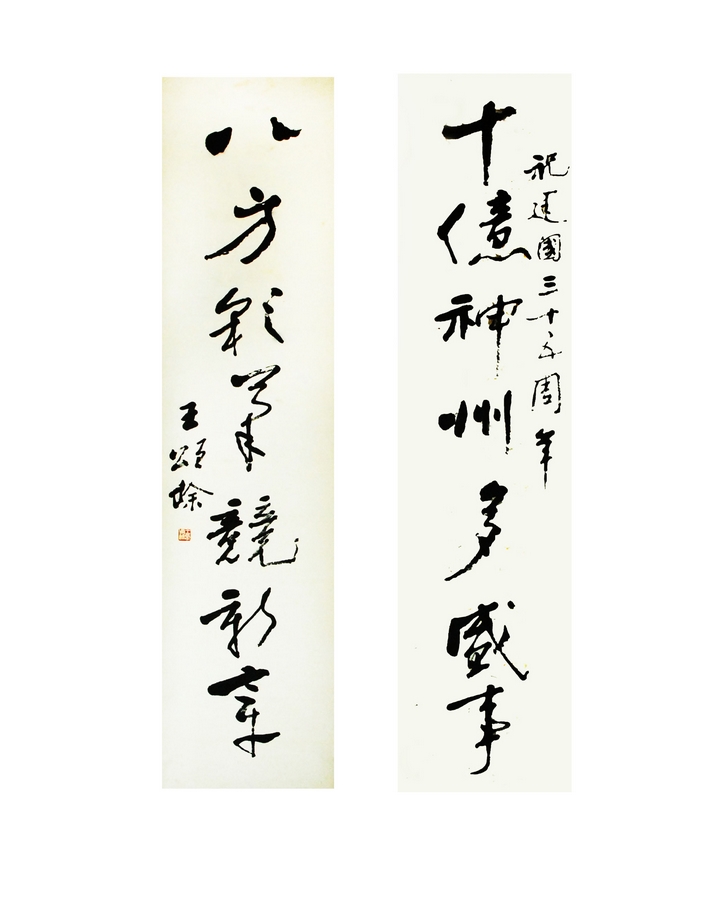 祝建國三十五周年
十億神州多盛事
八方彩筆競新章
王頌餘